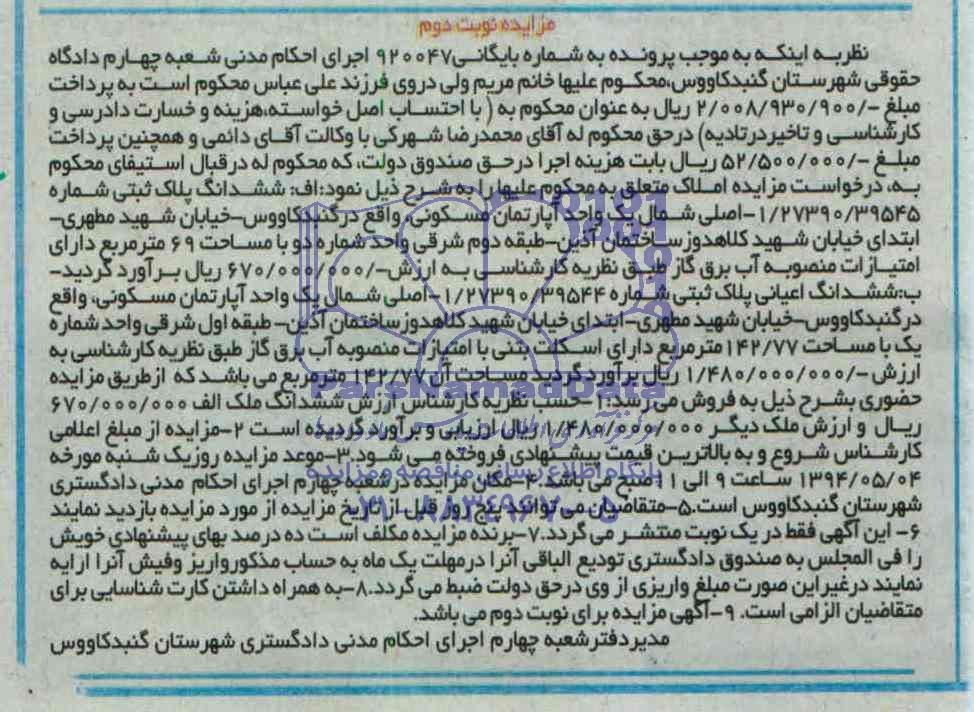 مزایده نوبت دوم
نظربه اینکه به موجب پرونده به شماره بایگانی۹۲۰۰۴۷ اجرای احکام مدنی شعبه چهارم دادگاه
حقوقی شهرستان گنبدکاووس،محکوم علیها خانم مریم ولی دروی فرزند علی عباس محکوم است به پرداخت
مبلغ -/۲/۰۰۸/۹۳۰/۹۰۰ ریال به عنوان محکوم به ( با احتساب اصل خواسته،هزینه و خسارت دادرسی و
کارشناسی و تاخیردرتادیه) درحق محکوم له آقای محمدرضا شهرکی با وکالت آقای دائمی و همچنین پرداخت
مبلغ -/۵۲/۵۰۰/۰۰۰ ریال بابت هزینه اجرا درحق صندوق دولت، که محکوم له درقبال استیفای محکوم
به، درخواست مزایده املاک متعلق به محکوم علیها را به شرح ذیل نمود:اف: ششدانگ پلاک ثبتی شماره
۱/۲۷۳۹۰/۳۹۵۴۵-اصلی شمال یک واحد آپارتمان مسکونی، واقع درگنبدکاووس-خیابان شهید مطهری-
ابتدای خیابان شهید کلاهدوزساختمان آذین-طبقه دوم شرقی واحد شماره دو با مساحت ۶۹ مترمربع دارای
امتیازات منصوبه آب برق گاز طبق نظریه کارشناسی به ارزش-/۶۷۰/۰۰۰/۰۰۰ ریال برآورد گردید-
ب:ششدانگ اعیانی پلاک ثبتی شماره ۱/۲۷۳۹۰/۳۹۵۴۴-اصلی شمال یک واحد آپارتمان مسکونی، واقع
درگنبدکاووس-خیابان شهید مطهری-ابتدای خیابان شهید کلاهدوزساختمان آذین- طبقه اول شرقی واحد شماره
یک با مساحت ۱۴۲/۷۷مترمربع دارای اسکلت بتنی با امتیازات منصوبه آب برق گاز طبق نظریه کارشناسی به
ارزش-/۱/۴۸۰/۰۰۰/۰۰۰ ریال برآوردگردید مساحت آن ۱۴۲/۷۷ مترمربع می باشد که ازطریق مزایده
حضوری بشرح ذیل به فروش می رسد:۱-حسب نظریه کارشناس ارزش ششدانگ ملک الف ۶۷۰/۰۰۰/۰۰۰
ریال و ارزش ملک دیگر ۱/۴۸۰/۰۰۰/۰۰۰ ریال ارزیابی و برآورد گردیده است ۲-مزایده از مبلغ اعلامی
کارشناس شروع و به بالاترین قیمت پیشنهادی فروخته می شود.۳-موعد مزایده روزیک شنبه مورخه
۱۳۹۴/۰۵/۰۴ ساعت ۹ الی ۱۱ صبح می باشد ۴-مکان مزایده درشعبه چهارم اجرای احکام مدنی دادگستری
شهرستان گنبدکاووس است.۵-متقاضیان می توانند پنج روز قبل از تاریخ مزایده از مورد مزایده بازدید نمایند
۶- این آگهی فقط در یک نوبت منتشر می گردد.۷-برنده مزایده مکلف است ده درصد بهای پیشنهادی خویش
را فی المجلس به صندوق دادگستری تودیع الباقی آنرا درمهلت یک ماه به حساب مذکورواریز وفیش آنرا ارایه
نمایند درغیراین صورت مبلغ واریزی از وی درحق دولت ضبط می گردد.۸-به همراه داشتن کارت شناسایی برای
متقاضیان الزامی است. ۹-آگهی مزایده برای نوبت دوم می باشد.
مدیردفترشعبه چهارم اجرای احکام مدنی دادگستری شهرستان گنبدکاووس
ParsNamadData
پایگاه اطلاع رسانی مناقصه و مزایده
۰۲۱-۸۸۳۴۹۶۷۰-۵